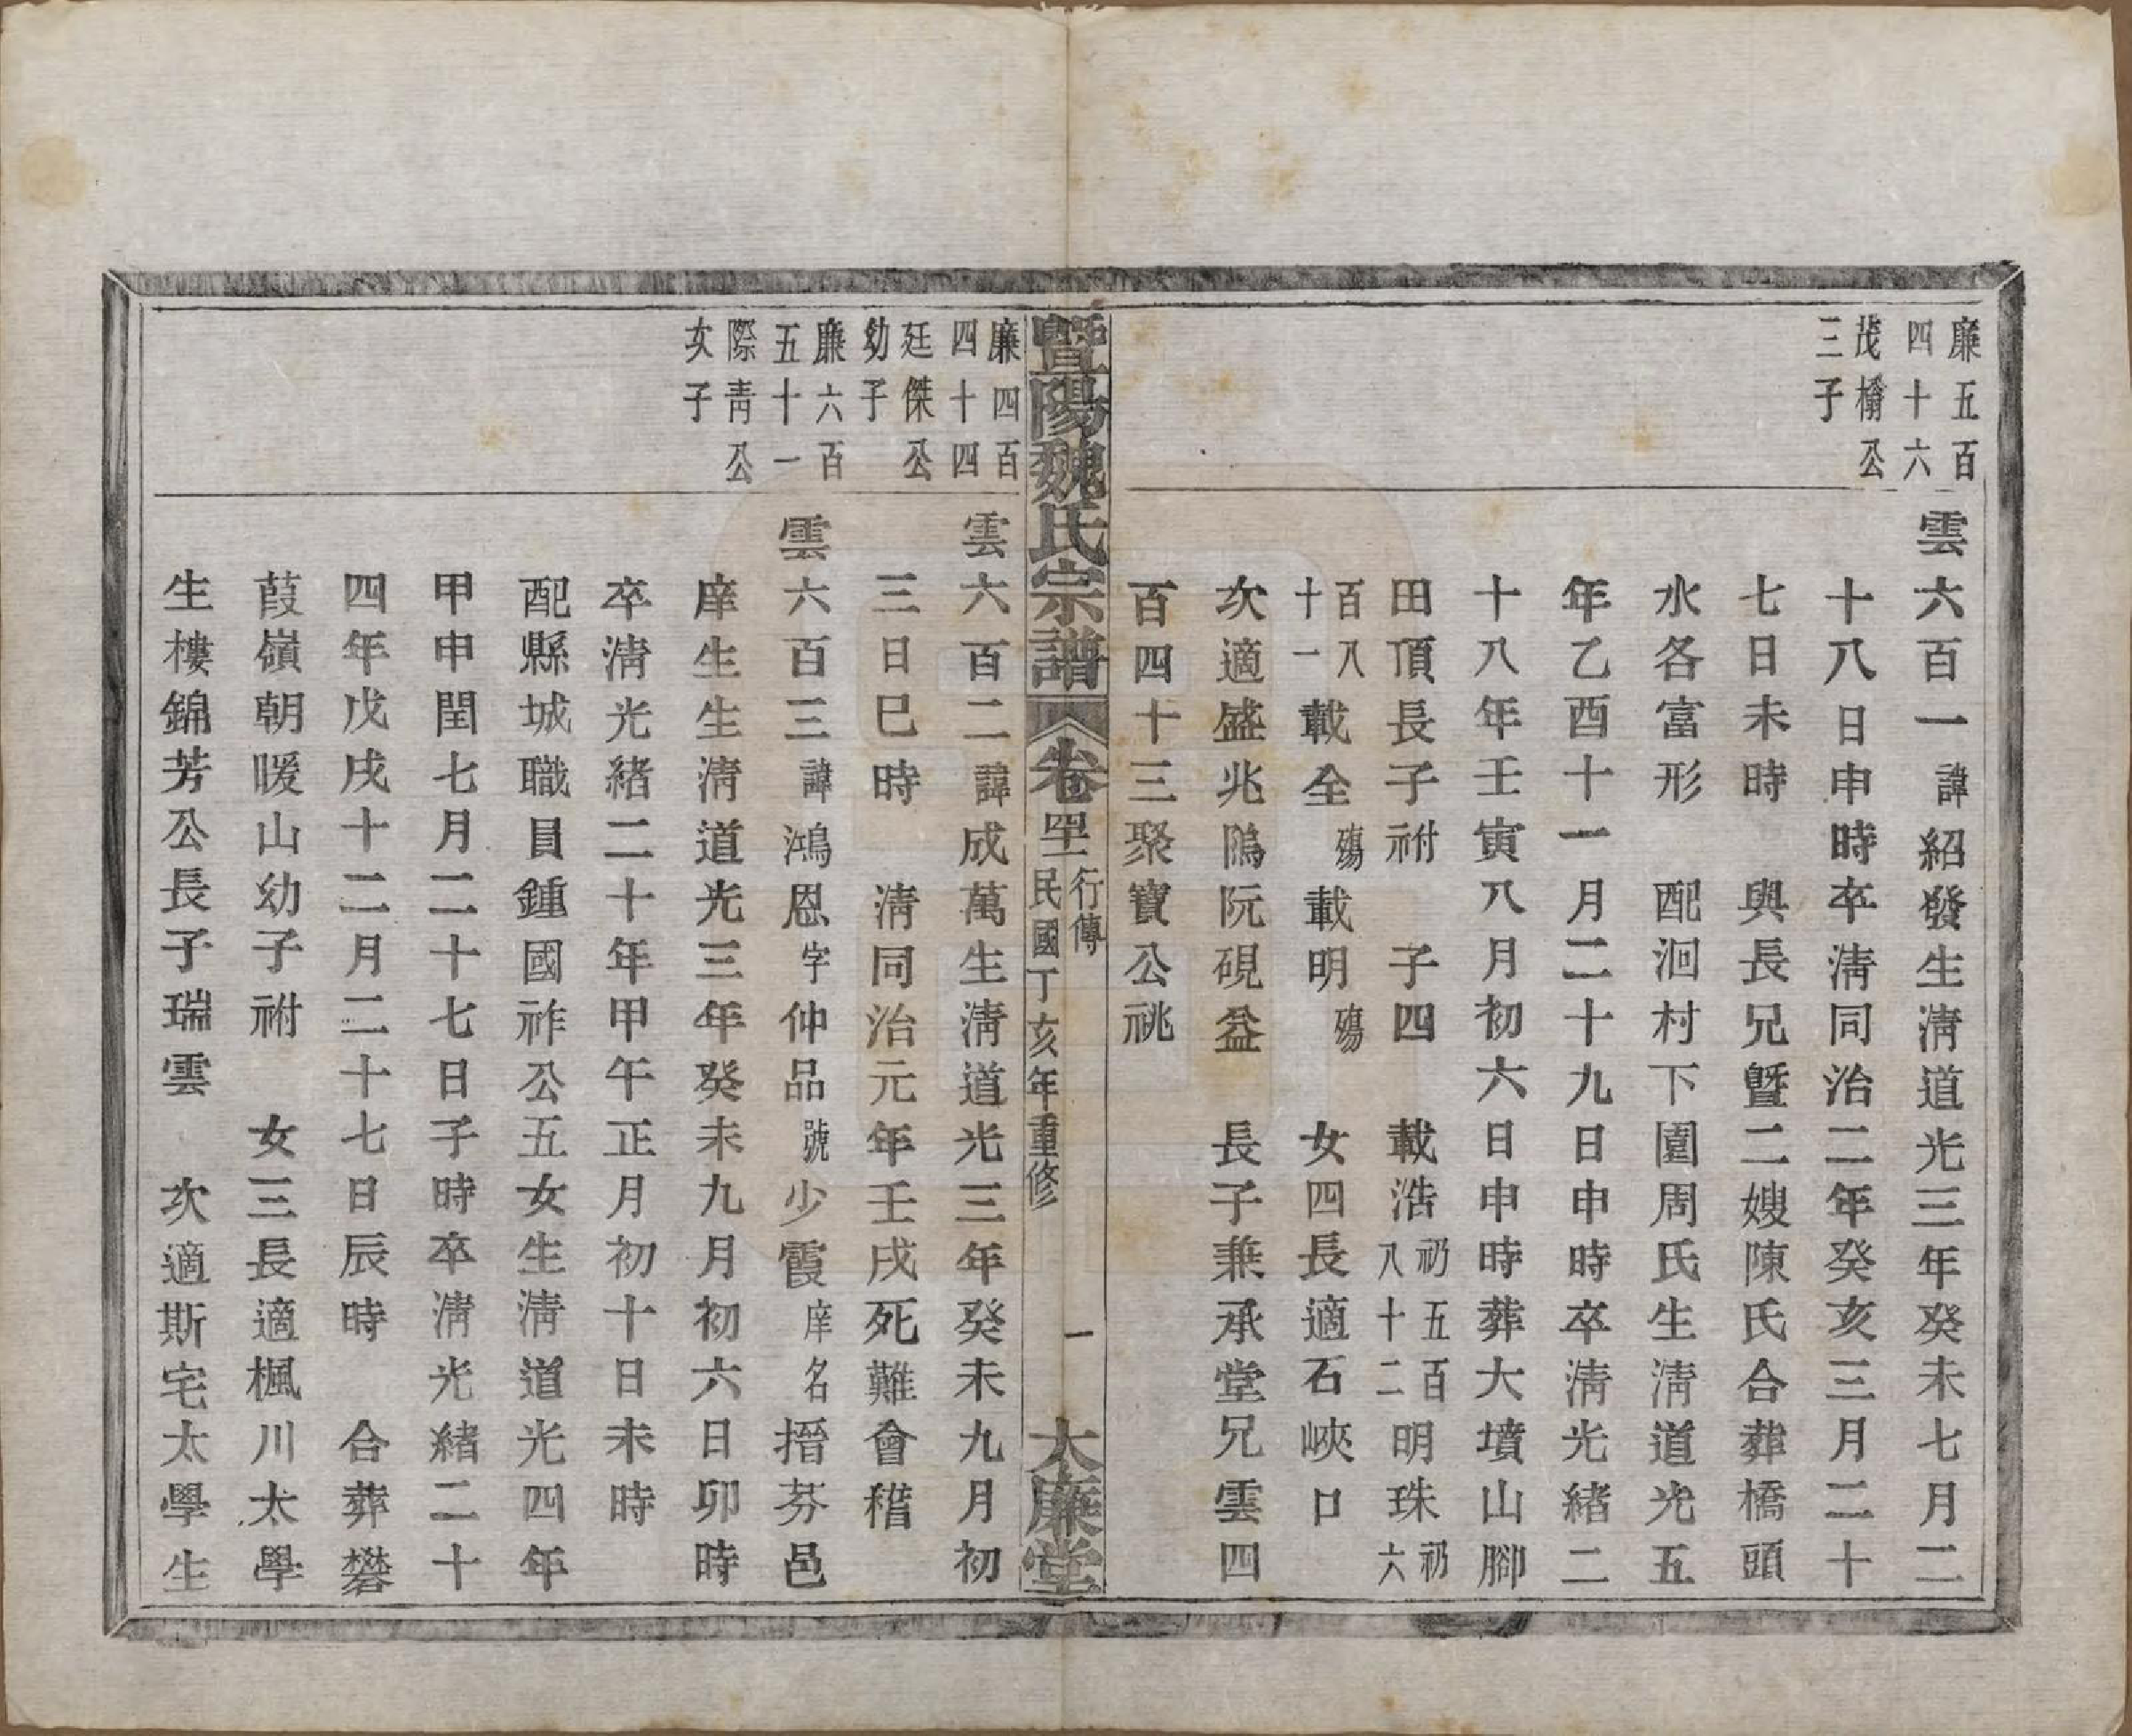 廉五百
四十六
茂橋公
三子
雲六百一諱紹發生淸道光三年癸未七月二
十八日申時卒淸同治二年癸亥三月二十
七日未時　與長兄曁二嫂陳氏合葬橋頭
水各富形　配洄村下園周氏生淸道光五
年乙酉十一月二十九日申時卒淸光緒二
十八年壬寅八月初六日申時葬大墳山腳
田頂長子祔　子四　載浩礽五百八十二明珠礽六
百八十一載全殤載明殤　女四長適石峽口
次適盛兆隖阮硯益　長子兼承堂兄雲四
百四十三聚寶公祧
曁陽魏氏宗譜
卷四十二
行傳
民國丁亥年重修
一
大廉堂
廉四百
四十四
廷傑公
幼子
雲六百二諱成萬生淸道光三年癸未九月初
三日巳時　淸同治元年壬戌死難會稽
廉六百
五十一
際靑公
女子
雲六百三諱鴻恩字仲品號少霞庠名搢芬邑
庠生生淸道光三年癸未九月初六日卯時
卒淸光緒二十年甲午正月初十日未時
配縣城職員鍾國祚公五女生淸道光四年
甲申閏七月二十七日子時卒淸光緒二十
四年戊戌十二月二十七日辰時　合葬礬
葭嶺朝暖山幼子祔　女三長適楓川太學
生樓錦芳公長子瑞雲　次適斯宅太學生